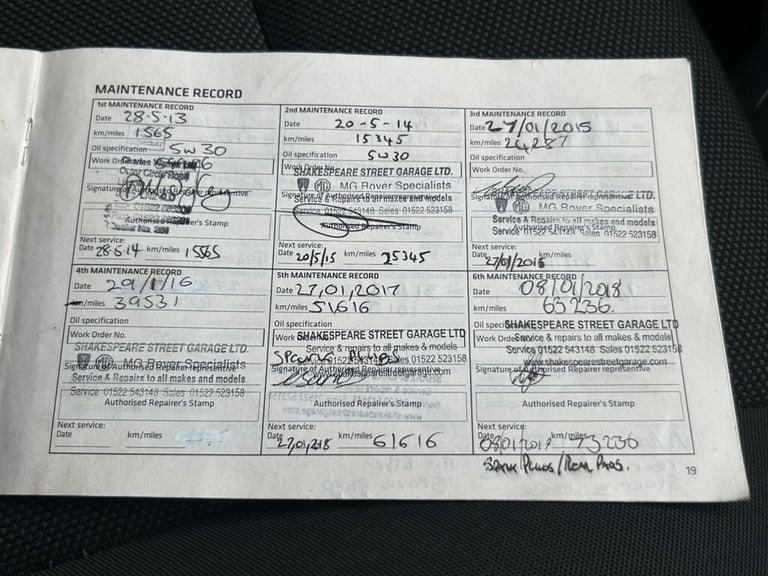 MAINTENANCE RECORD
1st MAINTENANCE RECORD
Date 28·5·13
km/miles 1565
Oil specification 5W30
Work Order No.
Authorised Repairer's Stamp
Next service:
Date 28·5·14 km/miles 15565
2nd MAINTENANCE RECORD
Date 20-5-14
km/miles 15345
Oil specification 5W30
Work Order No.
SHAKESPEARE STREET GARAGE LTD.
MG Rover Specialists
Signature of Authorised Repairer representative
Service & Repairs to all makes and models
Service 01522 543148 Sales 01522 523158
Authorised Repairer's Stamp
Next service:
Date 20/5/15 km/miles 25345
3rd MAINTENANCE RECORD
Date 27/01/2015
km/miles 24287
Oil specification
Work Order No.
SHAKESPEARE STREET GARAGE LTD.
MG Rover Specialists
Service & Repairs to all makes and models
Authorised Repairer's Stamp
Service 01522 543148 Sales 01522 523158
Next service:
Date 27/01/2016 km/miles
4th MAINTENANCE RECORD
Date 29/1/16
km/miles 39531
Oil specification
Work Order No.
SHAKESPEARE STREET GARAGE LTD.
MG Rover Specialists
Signature of Authorised Repairer representative
Service & Repairs to all makes and models
Service 01522 543148 Sales 01522 523158
Authorised Repairer's Stamp
Next service:
Date km/miles
5th MAINTENANCE RECORD
Date 27,01,2017
km/miles 51616
Oil specification
Work SHAKESPEARE STREET GARAGE LTD
Service & repairs to all makes & models
Sales 01522 523158
Signature of Authorised Repairer representative
www.shakespearestreetgarage.com
Authorised Repairer's Stamp
Next service:
Date km/miles 61616
6th MAINTENANCE RECORD
Date 08/01/2018
km/miles 63236
SHAKESPEARE STREET GARAGE LTD
Service & repairs to all makes & models
Service 01522 543148 Sales 01522 523158
www.shakespearestreetgarage.com
Signature of Authorised Repairer representative
Authorised Repairer's Stamp
Next service:
Date 08/01/2019 km/miles 73236
SPARK PLUGS/
19